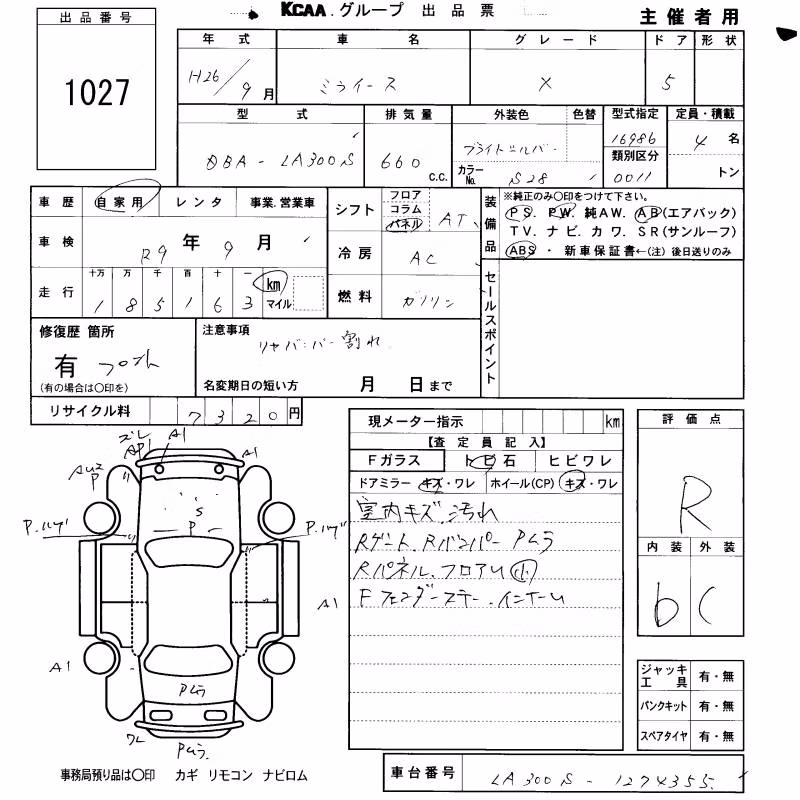 KCAA.グループ 出品票
主催者用
出品番号
1027
年式 車名 グレード ドア 形状
H26/9月 ミライース X 5
型式 排気量 外装色 色替 型式指定 定員・積載
DBA-LA300S 660 c.c. ブライトシルバー 16986 4名
カラーNo. S28 類別区分 0011 トン
車歴 自家用 レンタ 事業.営業車
シフト フロア コラム パネル AT
装備品 ※純正のみ○印をつけて下さい。
PS. PW. 純AW. AB(エアバック)
TV. ナビ. カワ. SR(サンルーフ)
ABS ・ 新車保証書←(注)後日送りのみ
車検 R9年9月
冷房 AC
走行 十万 万 千 百 十 一
185163 km マイル
燃料 ガソリン
セールスポイント
修復歴 箇所
有 フロント
(有の場合は○印を)
注意事項
リヤバンパー割れ
名変期日の短い方 月 日まで
リサイクル料 7320円
現メーター指示 km
【査定員記入】
Fガラス トビ石 ヒビワレ
ドアミラー キズ・ワレ ホイール(CP) キズ・ワレ
室内キズ.汚れ
Rゲート.Rバンパー Pムラ
Rパネル.フロアU小
Fフェンダーステー.インナーU
評価点
R
内装 外装
b C
ズレ
AP1 A1
AU2
P
A1
S
P
P.ハゲ P.ハゲ
A1
A1
Pムラ
ワレ Pムラ
ジャッキ工具 有・無
パンクキット 有・無
スペアタイヤ 有・無
事務局預り品は○印 カギ リモコン ナビロム
車台番号 LA300S-1274355